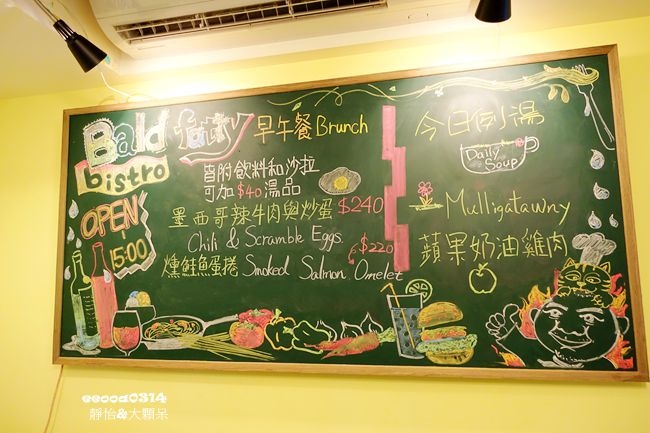 Bald fatty
bistro
OPEN
15:00
早午餐 Brunch
皆附飲料和沙拉
可加$40湯品
墨西哥辣牛肉與炒蛋 $240
Chili & Scramble Eggs.
$220
燻鮭魚蛋捲 Smoked Salmon Omelet
今日例湯
Daily
Soup
Mulligatawny
蘋果奶油雞肉
eeooa0314
靜怡&大顆呆